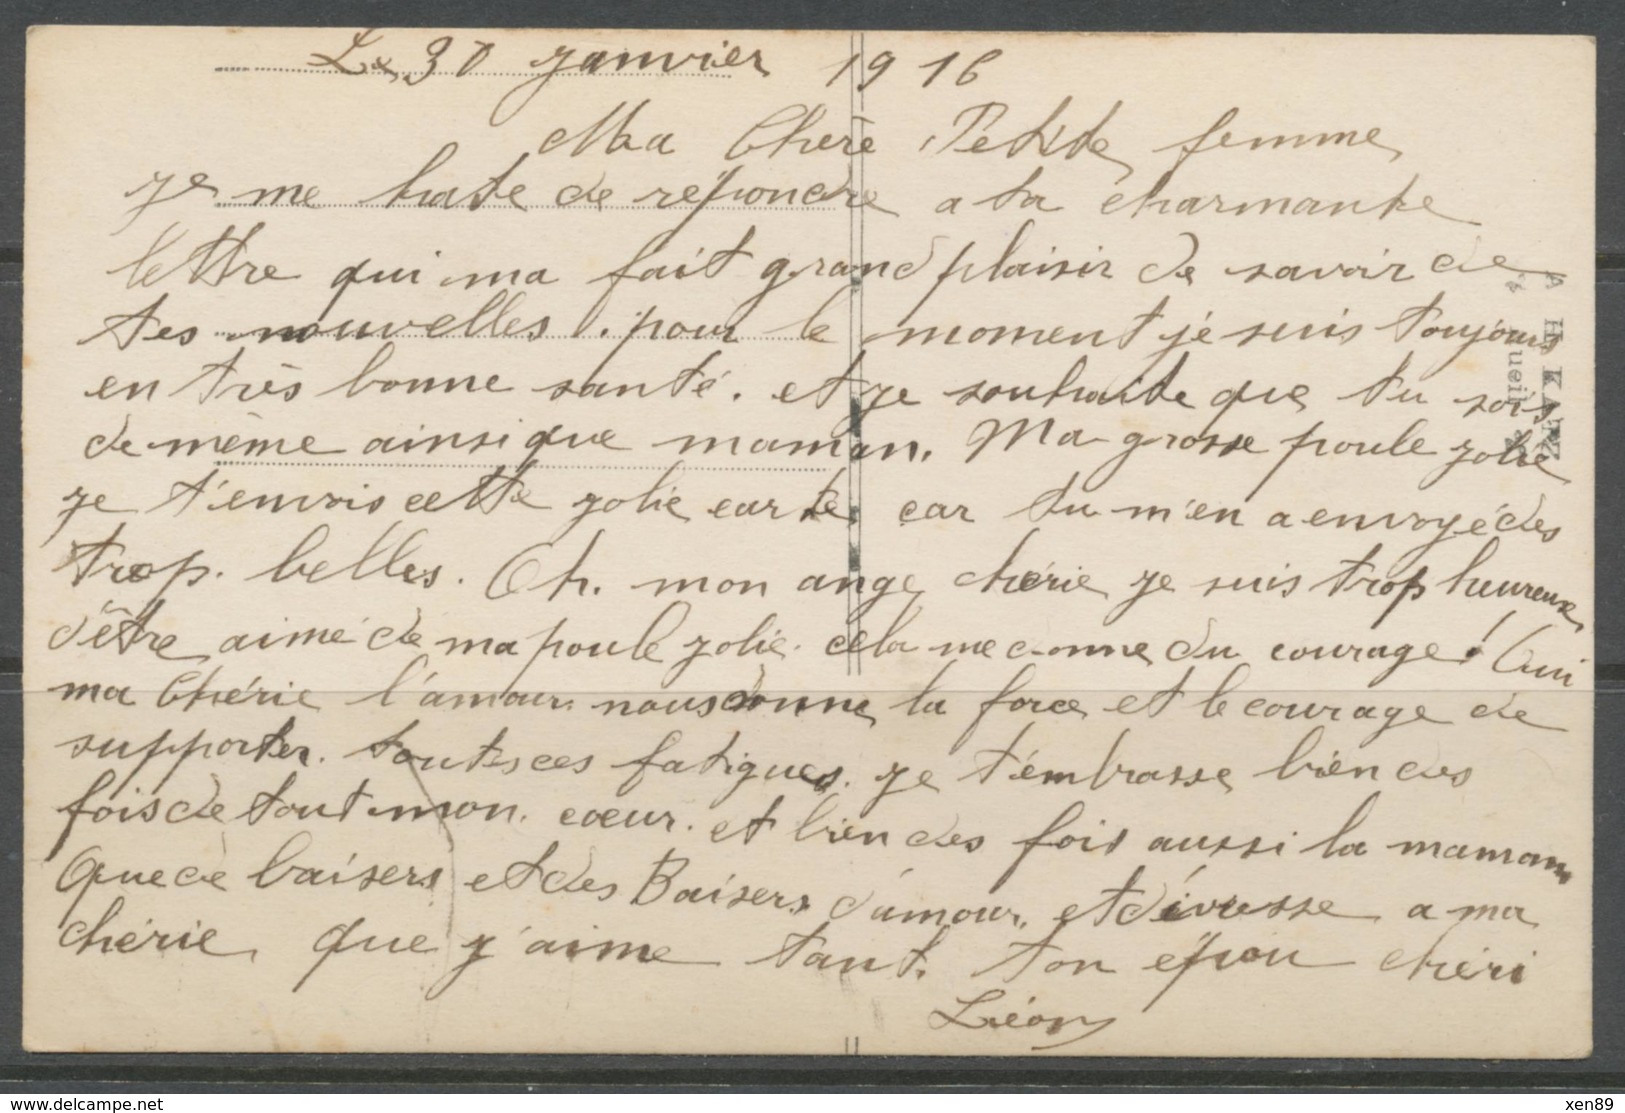 Le 30 janvier 1916
Ma Chère Petite femme
je me hate de répondre a ta charmante
lettre qui ma fait grand plaisir de savoir de
tes nouvelles. pour le moment je suis toujours
en très bonne santé. et je souhaite que tu sois
de même ainsi que maman. Ma grosse poule jolie
je t'envois cette jolie carte car tu m'en a envoyé des
trop. belles. Oh. mon ange chérie je suis trop heureuse
d'être aimé de ma poule jolie. cela me donne du courage! Oui
ma Chérie l'amour. nous donne la force et le courage de
supporter. toutes ces fatigues. je t'embrasse bien des
fois de tout mon. cœur. et bien des fois aussi la maman
Que de baisers et des Baisers d'amour. et d'ivresse a ma
chérie que j'aime tant. ton épou chéri
Léon
A H KATZ
www.delcampe.net
xen89